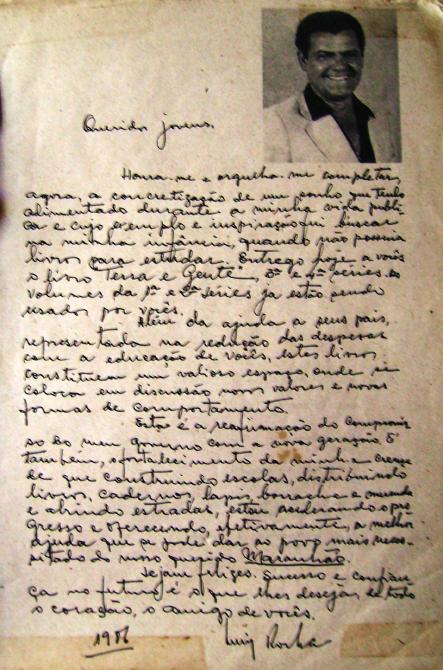 Queridos jovens.
Honra-me e orgulha-me completar,
agora, a concretização de um sonho que tenho
alimentado durante a minha vida públi-
ca e cujo exemplo e inspiração fui buscar
na minha infância, quando não possuia
livros para estudar. Entrego hoje a vocês
o livro "Terra e Gente", 3ª e 4ª séries. Os
volumes da 1ª e 2ª séries já estão sendo
usados por vocês.
Além da ajuda a seus pais,
representada na redução das despesas
com a educação de vocês, estes livros
constituem um valioso espaço, onde se
coloca em discussão novos valores e novas
formas de comportamento.
Esta é a reafirmação do compromis
so do meu governo com a nova geração. É
também, o fortalecimento da minha crença
de que construindo escolas, distribuindo
livros, cadernos, lapis, borracha e merenda
e abrindo estradas, estou acelerando o pro
gresso e oferecendo, efetivamente, a melhor
ajuda que se pode dar ao povo mais neces-
sitado do nosso querido Maranhão.
Sejam felizes. Sucesso e confian
ça no futuro é o que lhes deseja, de todo
o coração, o amigo de vocês.
1986 Luiz Rocha